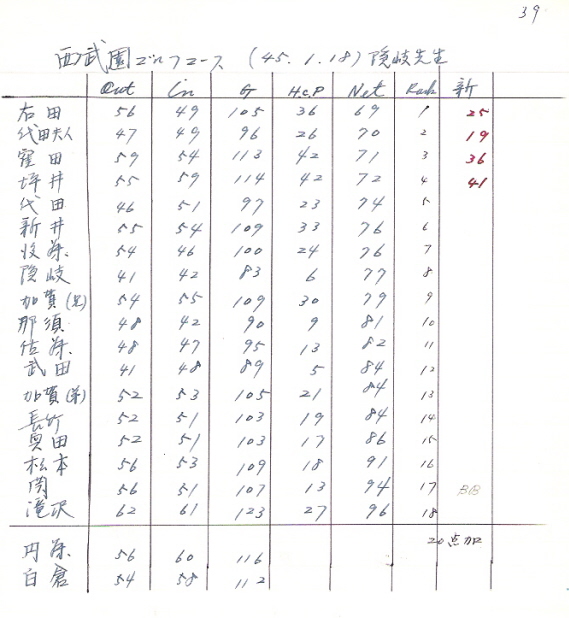 39
西武園ゴルフコース (45.1.18) 隠岐先生
Out In G H.c.P Net Rank 新
右田 56 49 105 36 69 1 25
代田夫人 47 49 96 26 70 2 19
窪田 59 54 113 42 71 3 36
坪井 55 59 114 42 72 4 41
代田 46 51 97 23 74 5
新井 55 54 109 33 76 6
54 46 100 24 76 7
隠岐 41 42 83 6 77 8
加賀(兄) 54 55 109 30 79 9
那須 48 42 90 9 81 10
佐藤 48 47 95 13 82 11
武田 41 48 89 5 84 12
加賀(弟) 52 53 105 21 84 13
長竹 52 51 103 19 84 14
奥田 52 51 103 17 86 15
松本 56 53 109 18 91 16
関 56 51 107 13 94 17 BB
滝沢 62 61 123 27 96 18
20点加
円藤 56 60 116
白倉 54 58 112